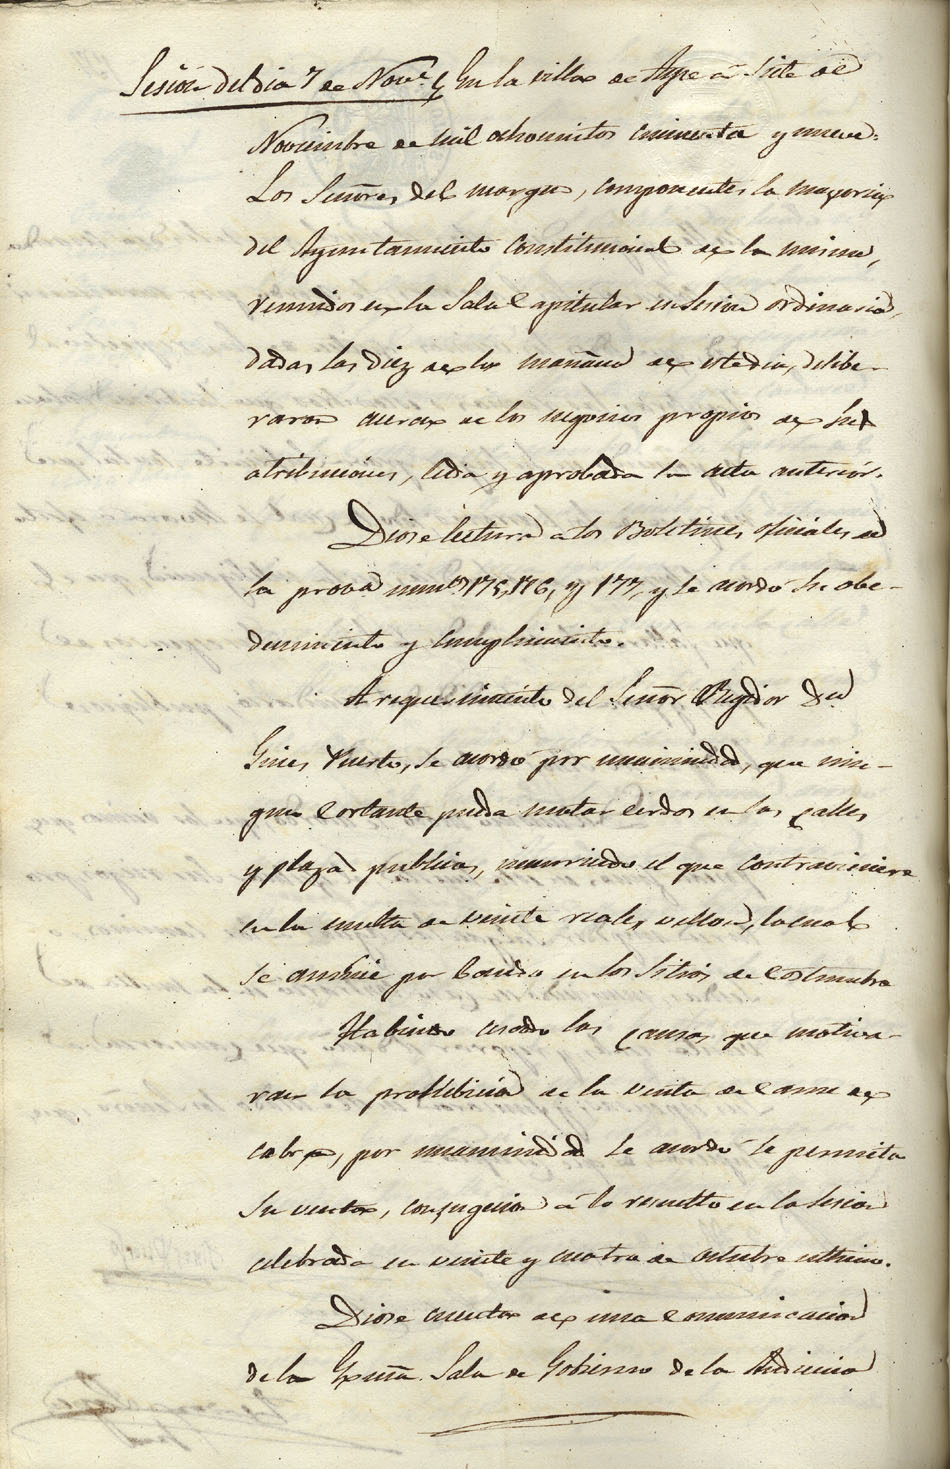 Sesión del dia 7 de Nove. } En la villa de Aspe á Siete de
Noviembre de mil ochocientos cincuenta y nueve:
Los Señores del margen, componentes la mayoria
del Ayuntamiento Constitucional de la misma,
reunidos en la Sala Capitular en Sesion ordinaria,
dadas las diez de la mañana de este dia, delibe-
raron acerca de los negocios propios de sus
atribuciones, leida y aprobada la acta anteriór.
Diose lectura a los Boletines oficiales de
la prova. numos. 175, 176, y 177, y se acordó su obe-
decimiento y cumplimiento.
A requerimiento del Señor Regidor Dn.
Gines Puerto, se acordó por unanimidad, que nin-
gun Cortante pueda matar cerdos en las calles
y plazas publicas, incurriendo el que contraviniere
en la multa de veinte reales vellon, lo cual
se anuncie por bando en los Sitios de Costumbre
Habiendo cesado las causas que motiva-
ron la prohibicion de la venta de Carne de
cabra, por unanimidad se acordó se permita
su venta, con sugecion á lo resuelto en la Sesion
celebrada en veinte y cuatro de octubre ultimo.
Diose cuenta de una Comunicacion
de la Exma. Sala de Gobierno de la Audiencia